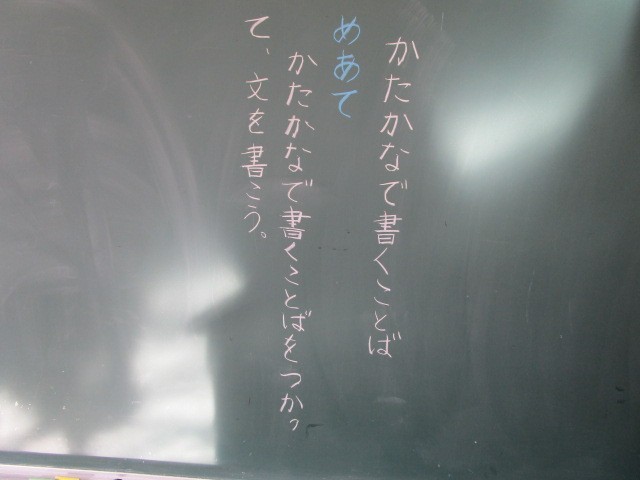 かたかなで書くことば
めあて
かたかなで書くことばをつかっ
て、文を書こう。